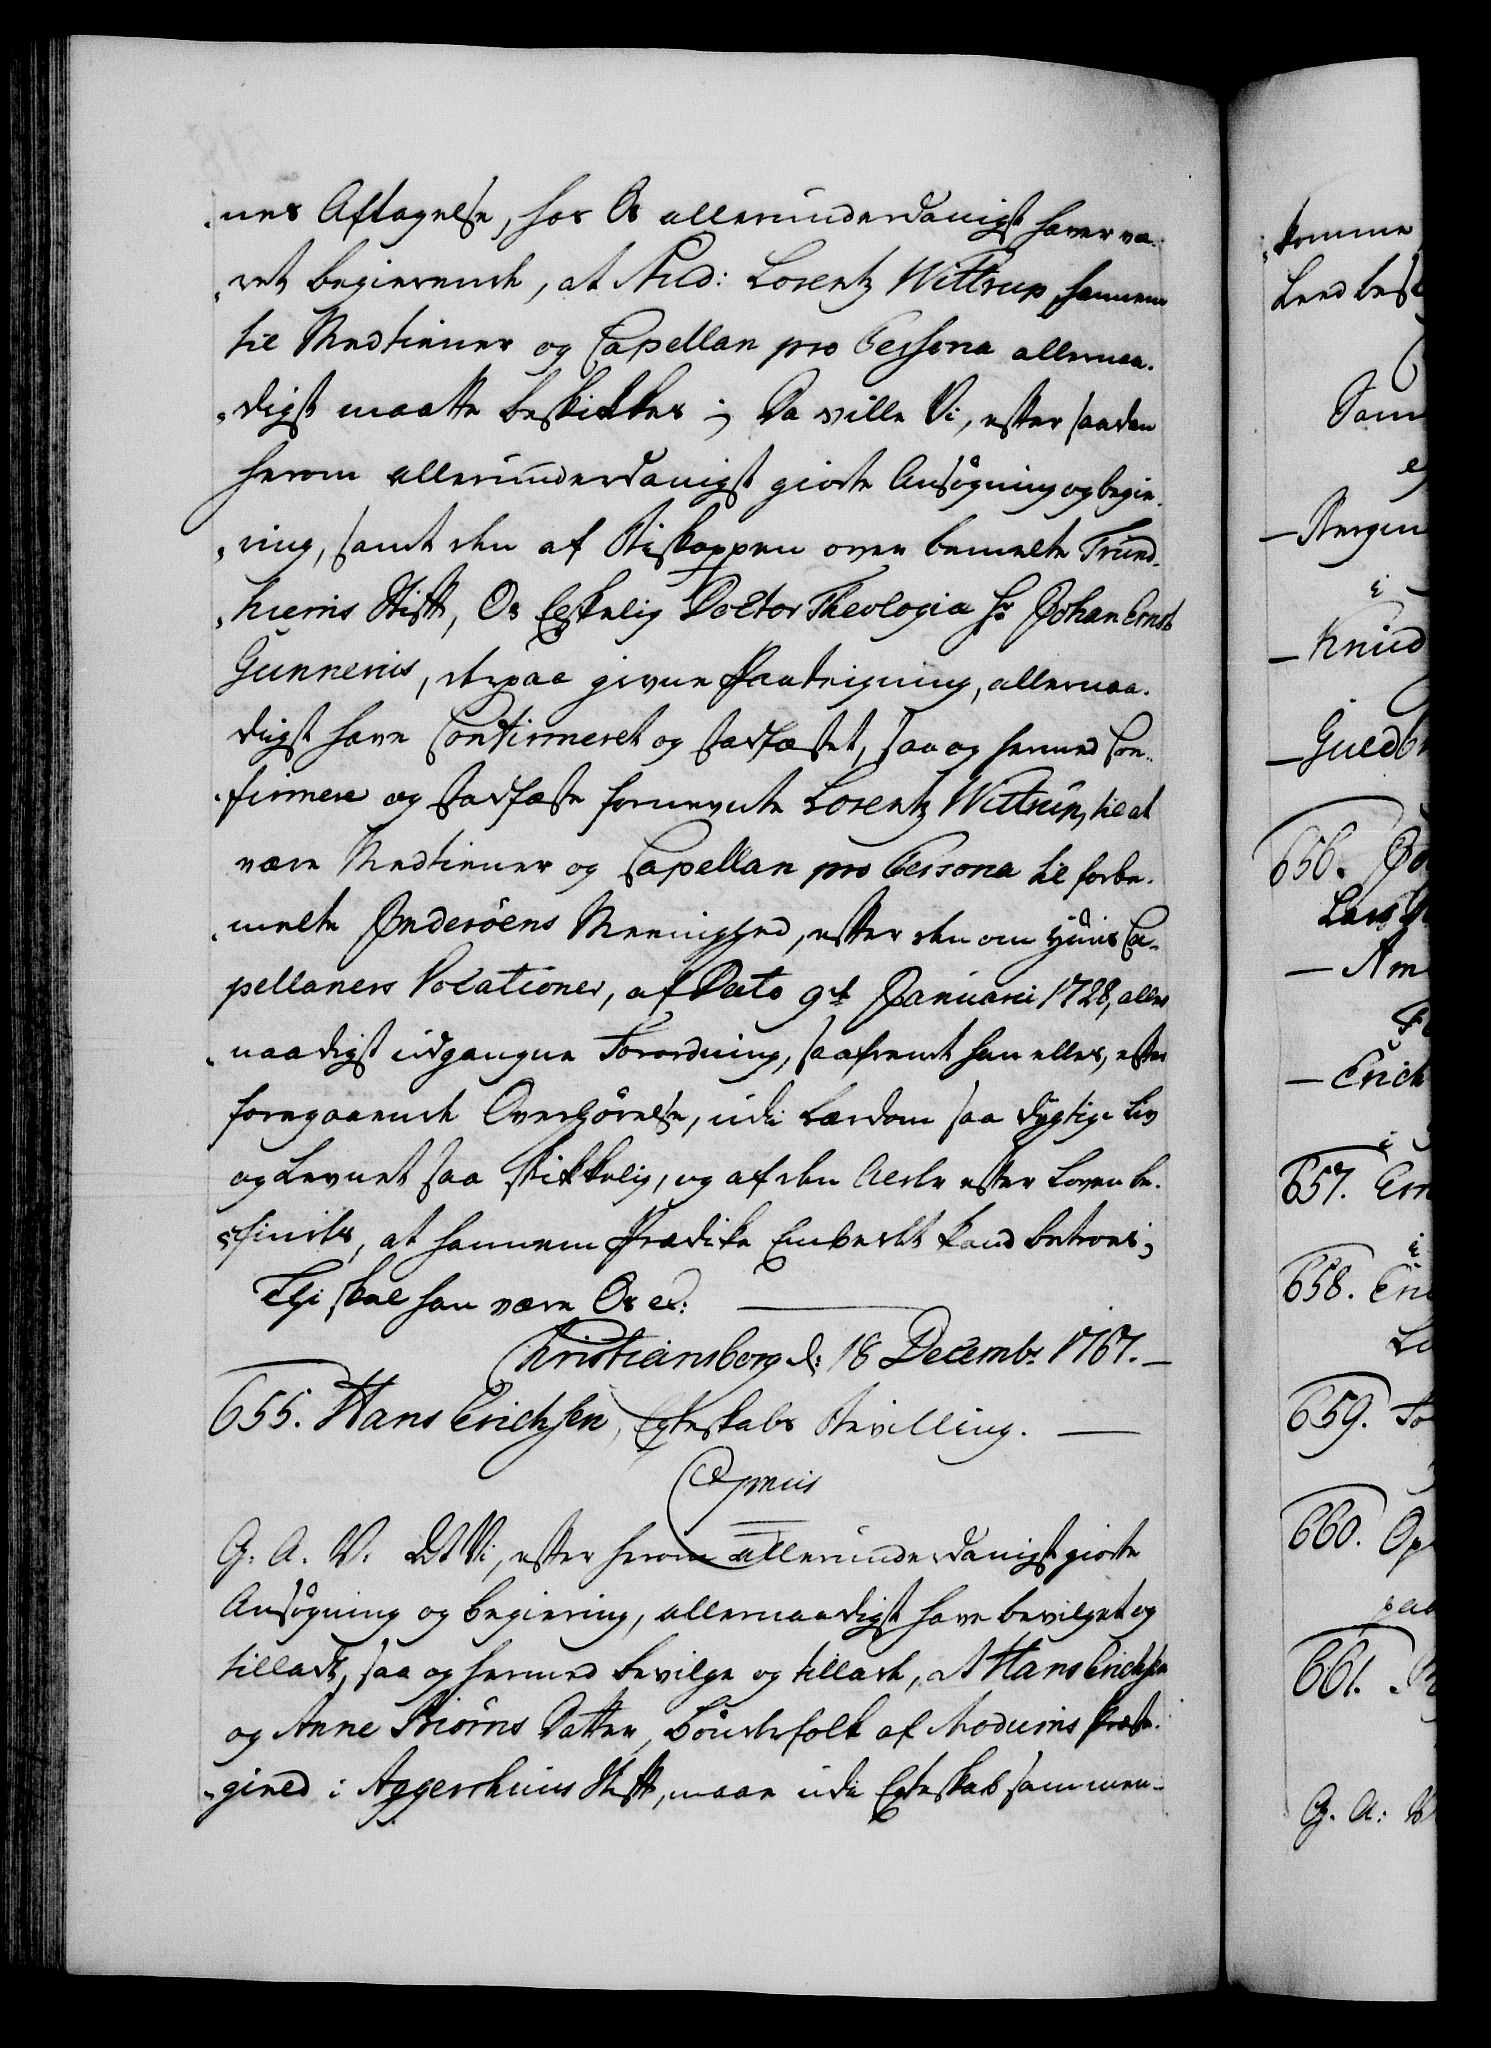 nes Aftagelse, hos Os allerunderdanigst haver væ-
ret begierende, at Stud: Lorentz Wittrup hannem
til Medtiener og Capellan pro Persona allernaa-
digst maatte beskikkes; Da ville Vi, efter saadan
herom allerunderdanigst giorte Ansøgning og begie-
ring, samt den af Biskoppen over bemelte Trund-
hiems Stift, Os Elskelig Doctor Theologia Hr Johan Ernst
Gunnerus, derpaa givne Paategning, allernaa-
digst have Confirmeret og stadfæstet, saa og hermed Con-
firmere og stadfæste fornevnte Lorentz Wittrup, til at
være Medtiener og Capellan pro Persona til forbe-
melte Inderöens Meenighed, efter den om hiris Ca-
pellaners Vocationer, af Dato 9de Januarii 1728, aller
naadigst udgangne Forordning, saafremt han ellers, efter
foregaaende Overhörelse, udi Lærdom saa dygtig, Liv
og Levnet saa skikkelig, og af den Alder efter Loven be-
findes, at hannem Prædike Embedet kand betroes;
Thi skal han være Os ec:
Christiansborg d: 18 Decembr 1767.
655. Hans Erichsen, Egteskabs Bevilling.
Cop: miis
G. A. V. At Vi, efter herom allerunderdanigst giorte
Ansøgning og begiering, allernaadigst have bevilget og
tilladt, saa og hermed bevilge og tillade, at Hans Erichsen
og Anne Biörns Datter, Böndefolk af Modums Præste-
gield i Aggershuus Stift, maae udi Egteskab sammen-
komme
Leedbe
Sam
Bergen
i
Knud
Guldb
656. Jo
Lars
Am
Erich
i
657. Ern
i
658. Eri
659. To
660. Op
paa
661.
G. A: V